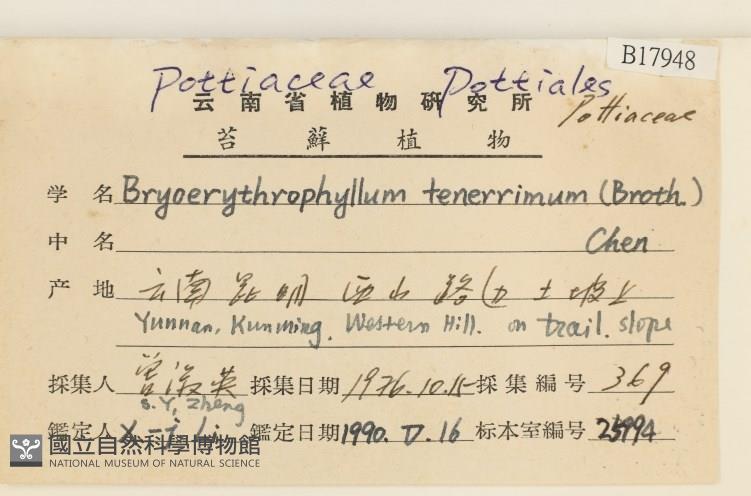 B17948
Pottiaceae Pottiales
云南省植物研究所
Pottiaceae
苔蘚植物
学名 Bryoerythrophyllum tenerrimum (Broth.)
中名 Chen
产地 云南昆明西山路边土坡上
Yunnan, Kunming, Western Hill. on trail. slope
採集人 曾淑英 採集日期 1976.10.15 採集編号 369
S. Y. Zheng
鑑定人 X-j Li 鑑定日期 1990. V. 16 标本室編号
國立自然科學博物館
NATIONAL MUSEUM OF NATURAL SCIENCE